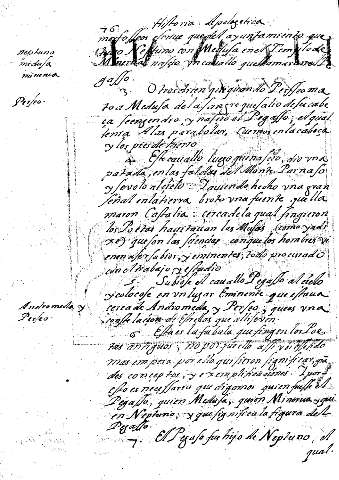 76
Historia Apologetica
que el ayuntamiento que
Neptuno con Medusa en el Templo de
Minerva nascio un cauallo que llamaron Pe
gasso.
neptuno
medusa
minerua
3. Otros dicen que quando Perseo ma
to a Medusa de la sangre que salio de su cabe
ça se engendro, y nascio el Pegasso; el qual
tenia alas para bolar, cuerno en la cabeça
y los pies de hierro.
Perseo.
4. Este cauallo luego que nascio, dio vna
patada, en las faldas del Monte Parnaso
y se volo al cielo. Y auiendo hecho vna gran
señal en la tierra broto vna fuente, que lla
maron Castalia: cerca de la qual fingieron
los Poetas
que son las sciencias, con que los hombres vi
enen a ser sabios, y eminentes; todo procurado
con el trabajo, y estudio.
5. Subiose el cauallo Pegasso al cielo
y colocose en vn lugar Eminente que estaua
cerca de Andromeda, y Perseo, que es vna
constelacion de estrellas que alli
Andromeda, y
Perseo.
6. Esta es la fabula que fingen los Poe
tas antiguos; no porque ello assi
mas
dos conceptos, y Y por
esso es necessario que digamos quien fuesse el
Pegasso, quien Medusa, quien Minerua, y qui
en Neptuno; y que significa la figura del
Pegasso.
7. El Pegaso fue hijo de Neptuno, el
qual.